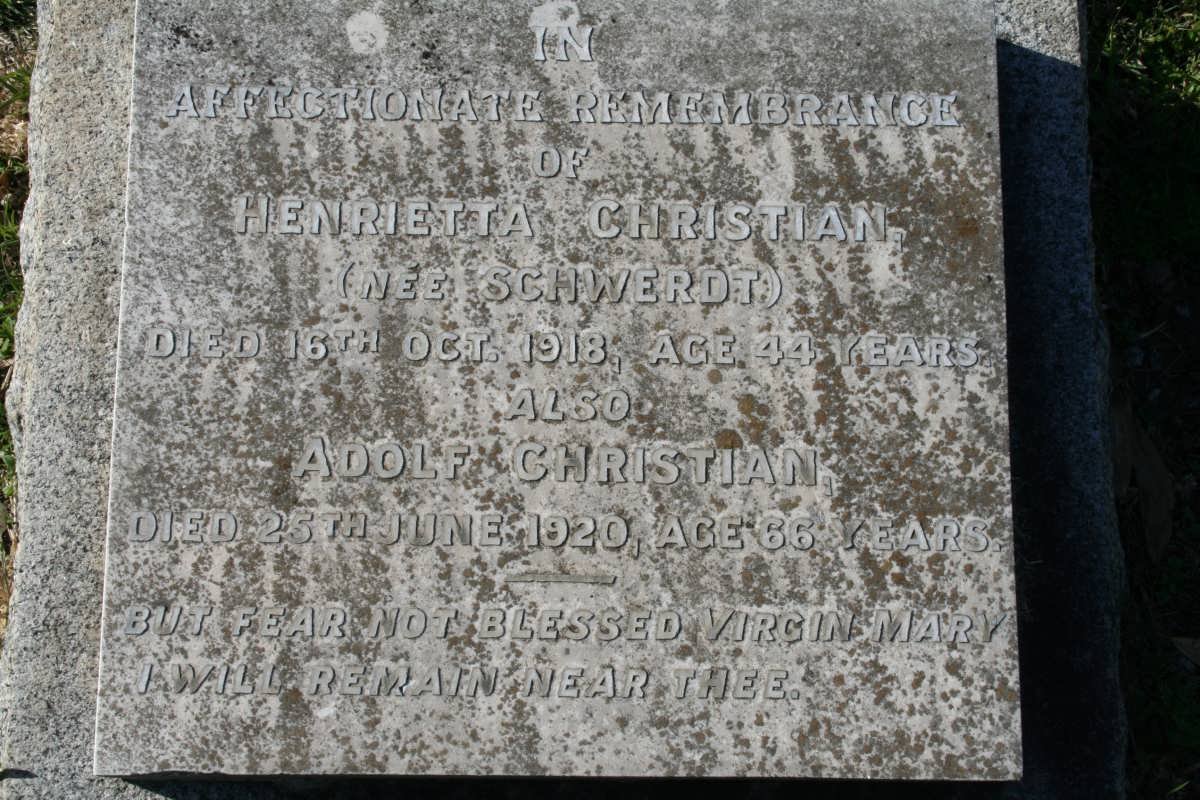 IN
AFFECTIONATE REMEMBRANCE
OF
HENRIETTA CHRISTIAN,
(NÉE SCHWERDT)
DIED 16TH OCT. 1918, AGE 44 YEARS.
ALSO
ADOLF CHRISTIAN,
DIED 25TH JUNE 1920, AGE 66 YEARS.
BUT FEAR NOT BLESSED VIRGIN MARY
I WILL REMAIN NEAR THEE.